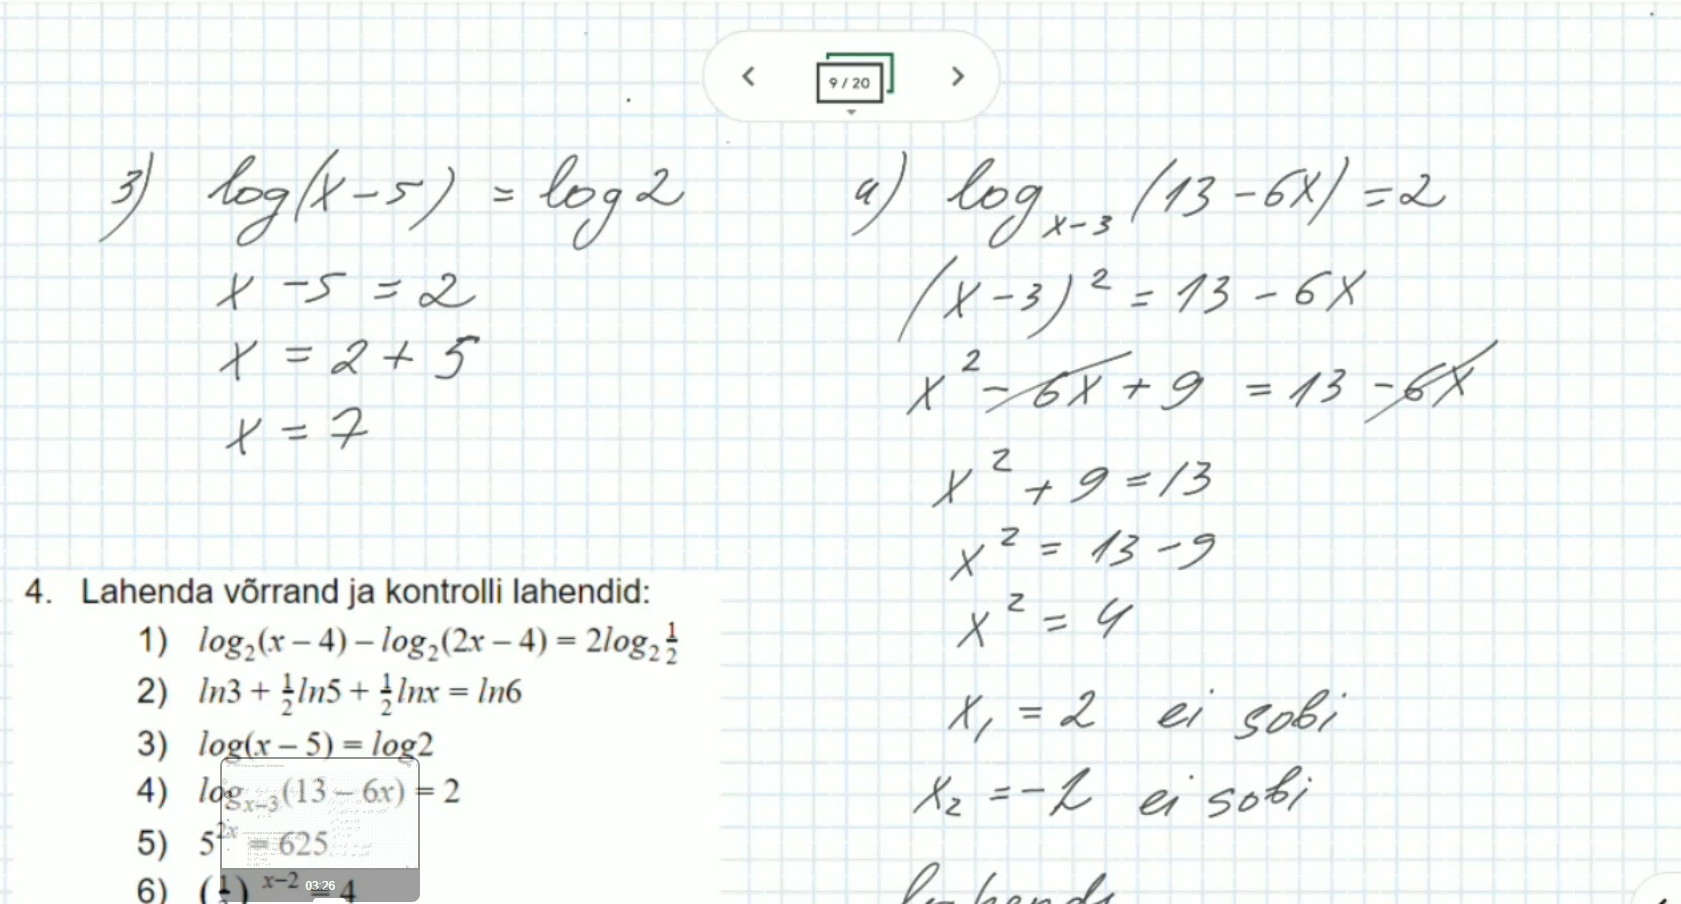 9 / 20
3) log(x-5) = log2
x - 5 = 2
x = 2 + 5
x = 7
4) log_{x-3} (13 - 6x) = 2
(x - 3)² = 13 - 6x
x² - 6x + 9 = 13 - 6x
x² + 9 = 13
x² = 13 - 9
x² = 4
x₁ = 2 ei sobi
x₂ = -2 ei sobi
4. Lahenda võrrand ja kontrolli lahendid:
1) log₂(x – 4) – log₂(2x – 4) = 2log₂ 1/2
2) ln3 + 1/2 ln5 + 1/2 lnx = ln6
3) log(x – 5) = log2
4) log_{x–3}(13 – 6x) = 2
5) 5^{2x} = 625
6) x–2 = 4
03:26